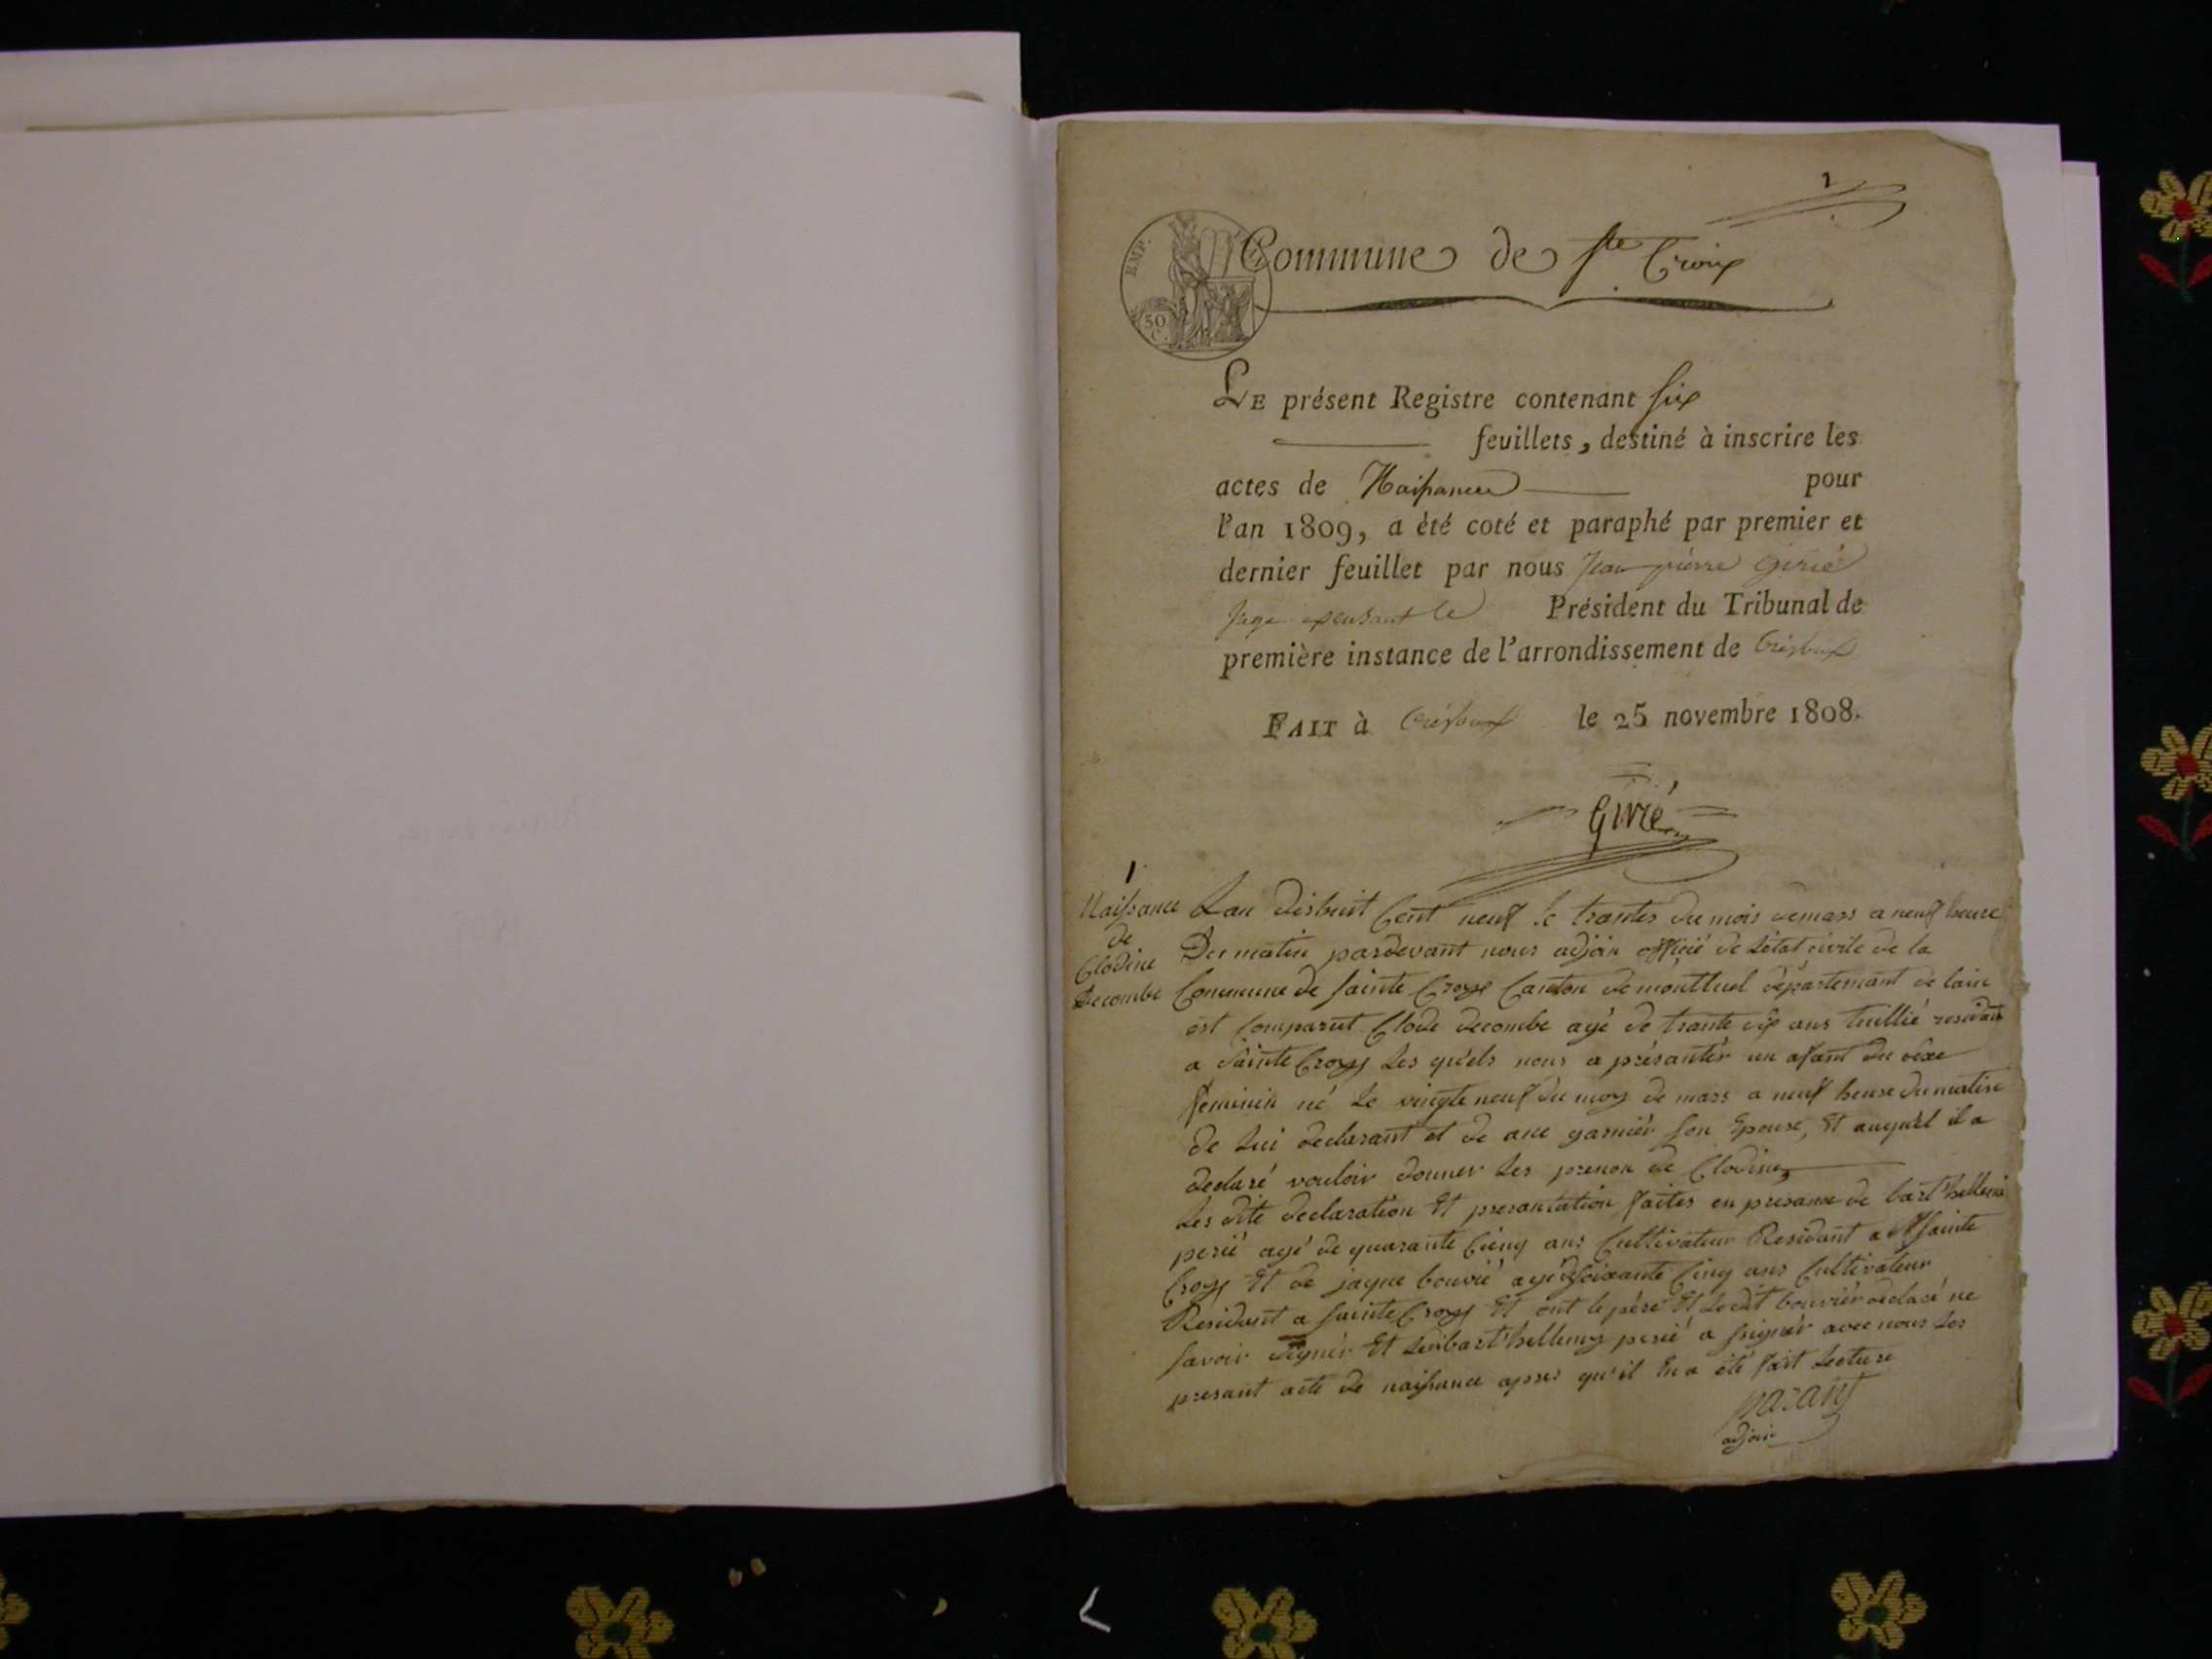 1
EMP.
50
C.
Commune de Ste Croix
LE présent Registre contenant six
feuillets, destiné à inscrire les
actes de Naissance pour
l'an 1809, a été coté et paraphé par premier et
dernier feuillet par nous Jean pierre Girié
Juge exerçant le Président du Tribunal de
première instance de l'arrondissement de Trévoux
FAIT à Trévoux le 25 novembre 1808.
Girié
1
Naissance
de
Clodine
Decombe
Lan dishuit Cent neuf le trantes du mois demars a neuf heure
Du matin pardevant nous adjoin officié de létat civile de la
Commune de sainte Croys Canton de monttuel départemant de lain
est Comparut Clode decombe agé de trante six ans tuillié residant
a Sainte Croys Les quels nous a présantér un afant du séxe
feminin né Le vingte neuf du moys de mars a neuf heure du matin
de Lui declarant et de ane garniér son Epouse, Et auquél il a
declaré vouloir donner Les prenon de Clodine
Les dite declaration Et presantation faites en presance de bart'hellemi
perié agé de quarante Cieng ans Cultivateur Residant a Sainte
Croys Et de jaque bouvié agé desoixante Cinq ans Cultivateur
Résidant a sainte Croys Et ont le pére Et Ledit bouviér declaré ne
savoir signér Et Ledi bart'hellemy perié a signér avec nous Les
presant acte de naissance apres qu'il En a été fait Lecture
parant
adjoin